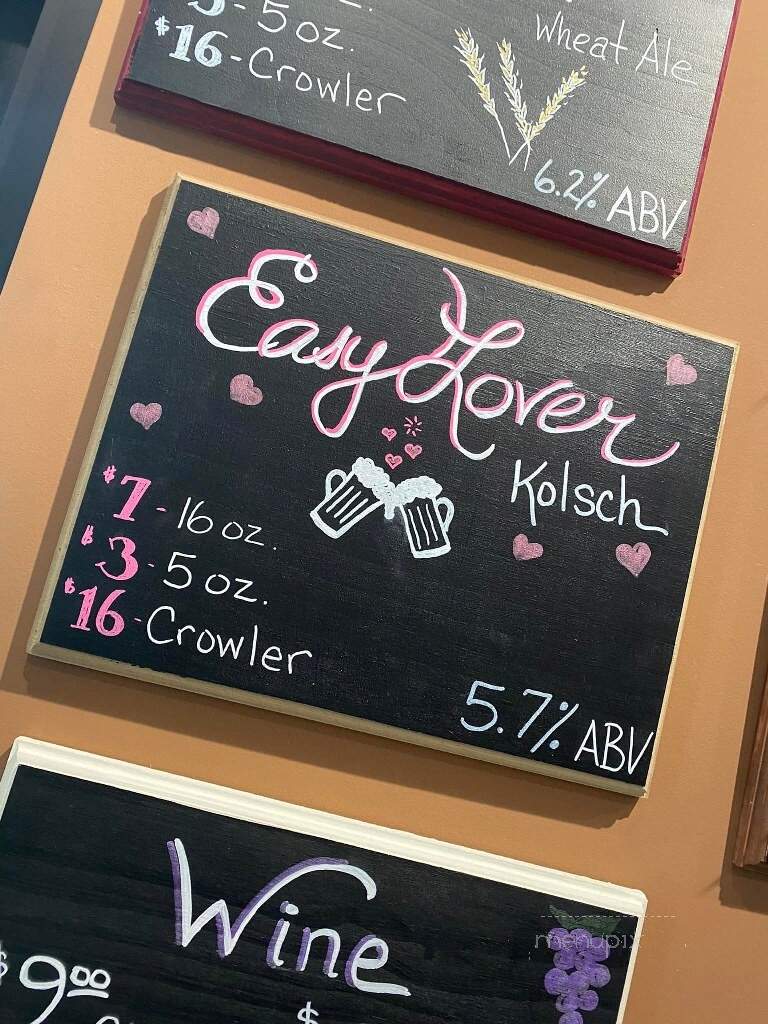 - 5 oz.
$16 - Crowler
Wheat Ale
6.2% ABV
Easy Lover
Kolsch
$7 - 16 oz.
$3 - 5 oz.
$16 - Crowler
5.7% ABV
Wine
$9.00
$
menupix